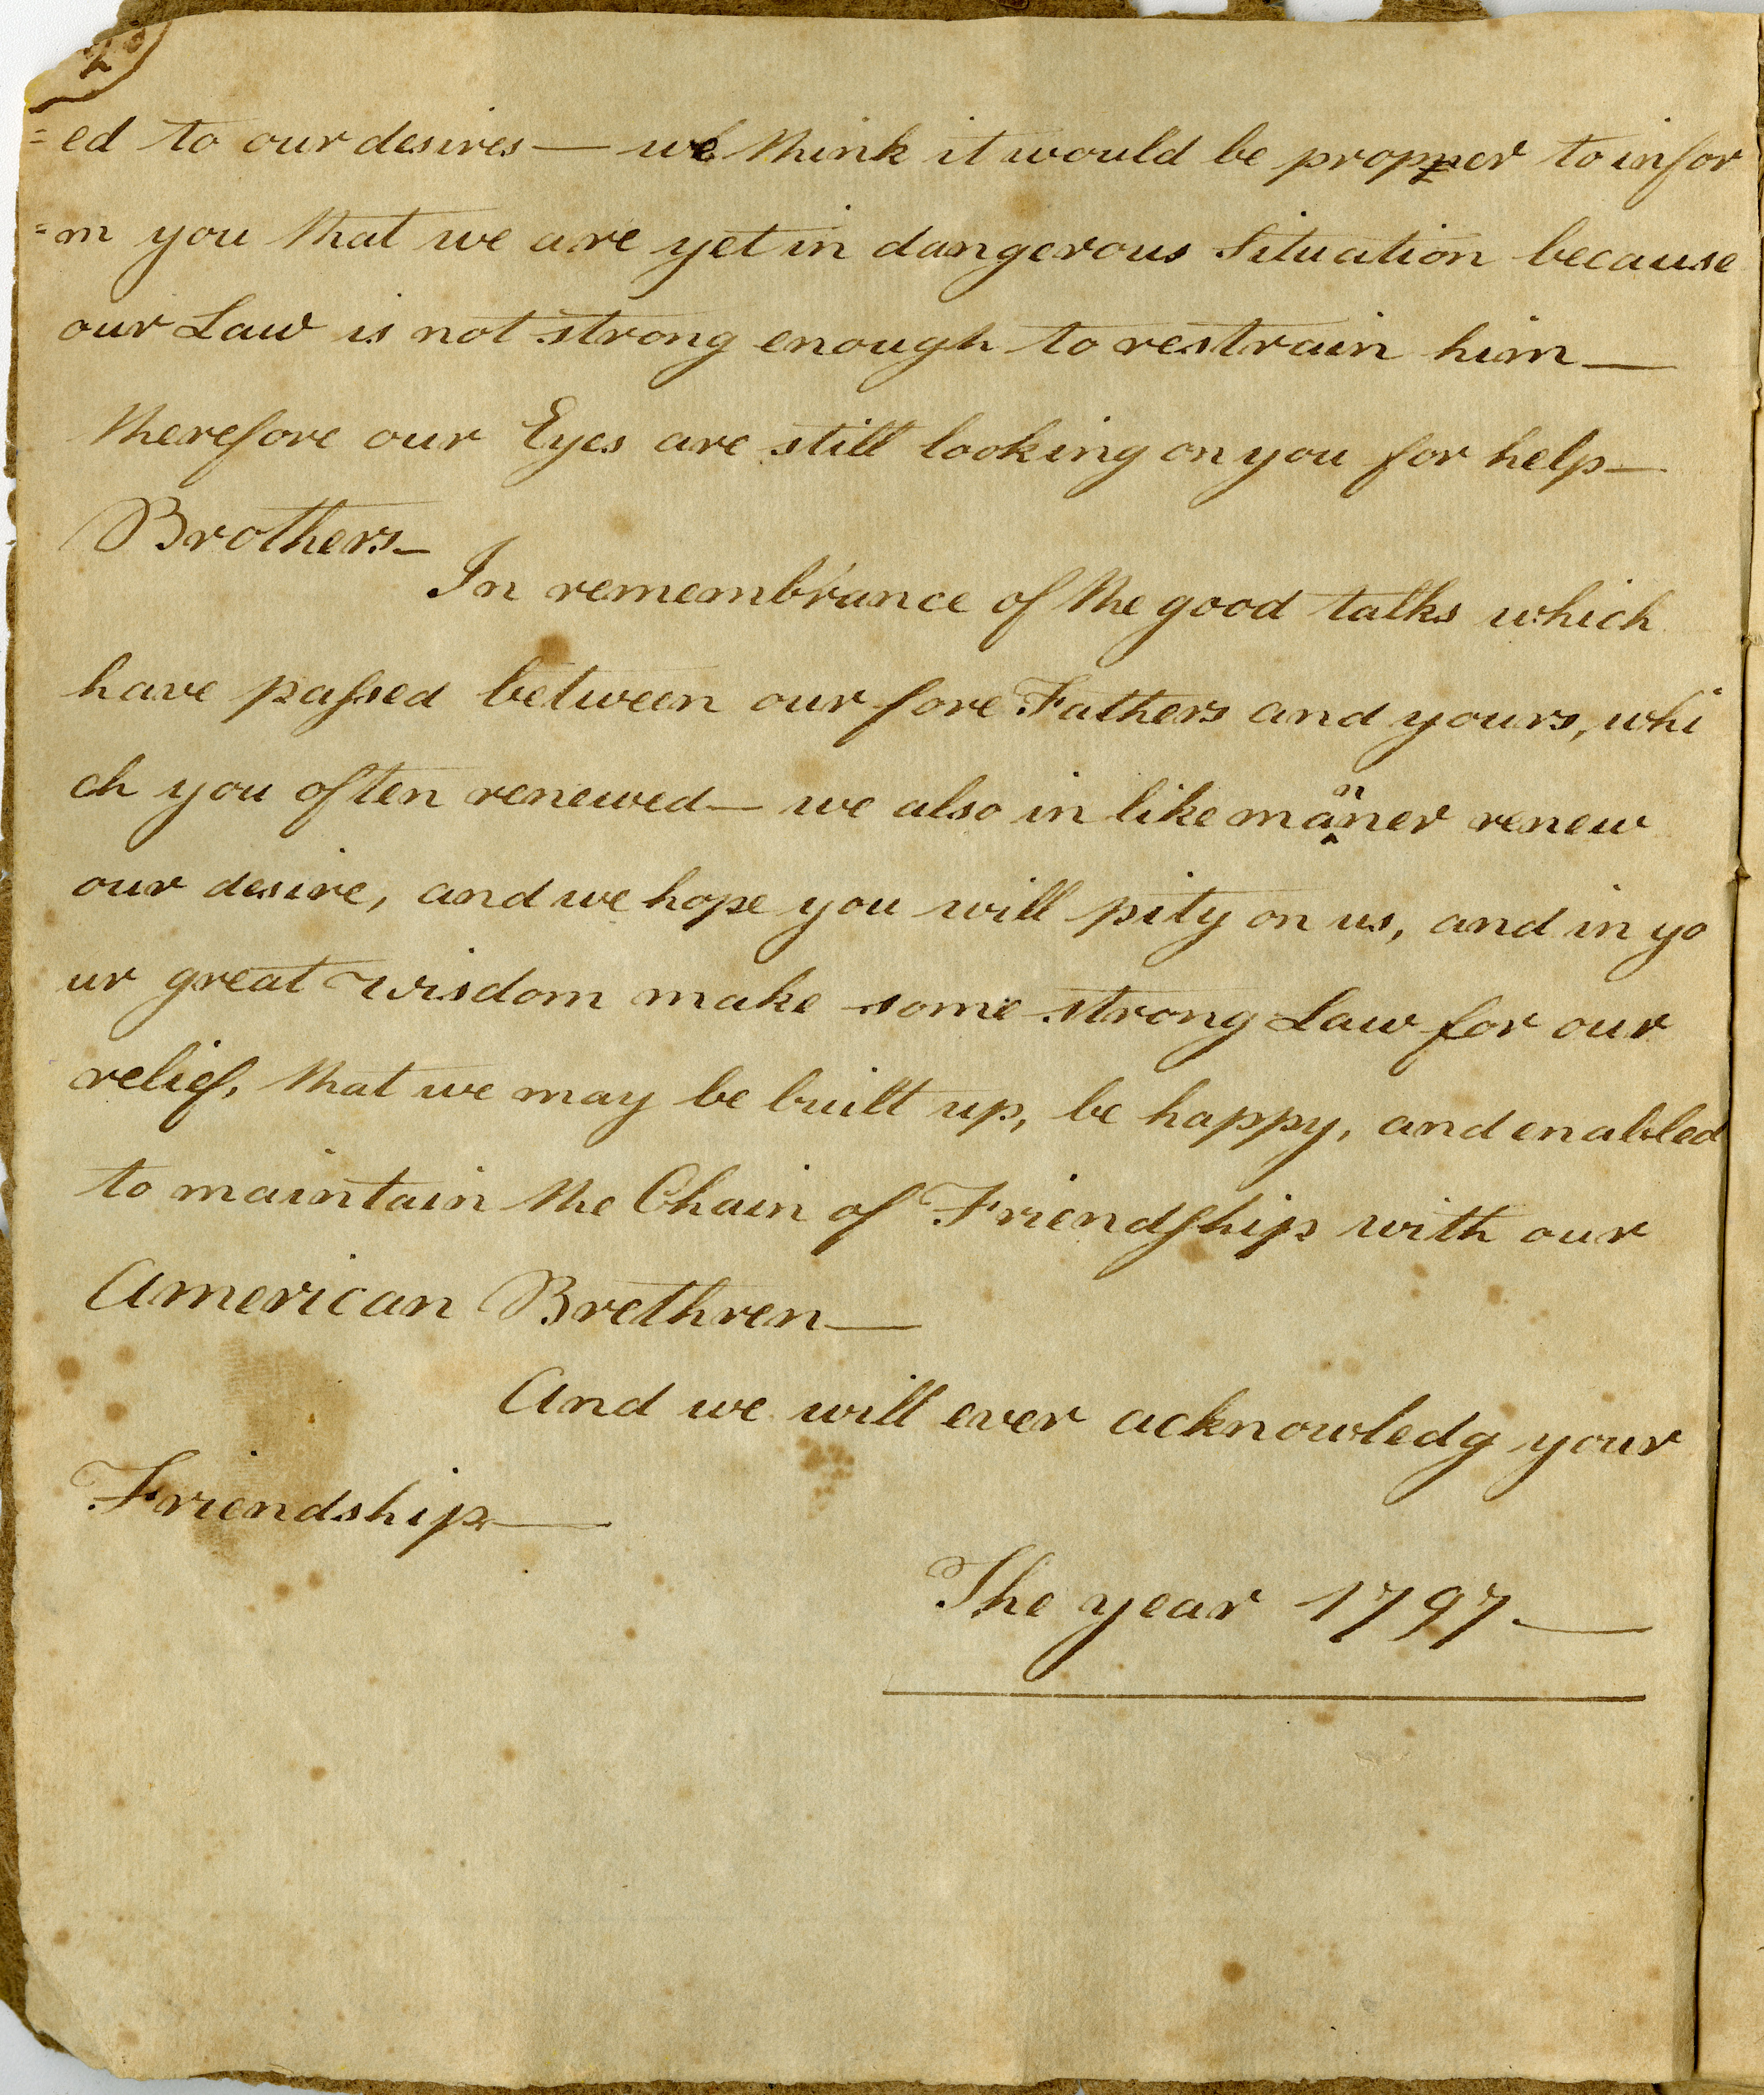 =ed to our desires — we think it would be propper to infor
=m you that we are yet in dangerous Situation because
our Law is not strong enough to restrain him —
therefore our Eyes are still looking on you for help —
Brothers —
In remembrance of the good talks which
have passed between our fore Fathers and yours, whi
ch you often renewed — we also in like manner renew
our desire, and we hope you will pity on us, and in yo
ur great wisdom make some strong Law for our
relief, that we may be built up, be happy, and enabled
to maintain the Chain of Friendship with our
American Brethren —
And we will ever acknowledg your
Friendship —
The year 1797 —